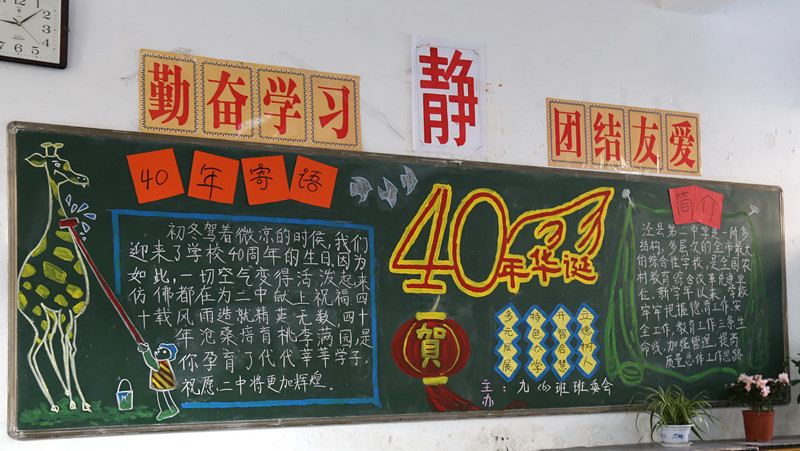 勤奋学习
静
团结友爱
40年寄语
初冬驾着微凉的时候,我们
迎来了学校40周年的生日,因为
如此,一切空气变得活泼起来
仿佛都在为二中献上祝福四
十载风雨造就精英无数,四十
年沧桑培育桃李满园,是
你孕育了代代莘莘学子,
祝愿,二中将更加辉煌。
40年华诞
賀
多元发展
特色办学
开智启慧
立德树人
主办:九(6)班班委会
简介
第二中学是一所多
结构,多层次的全市最大
的综合性学校,是全国农
村教育综合改革先进单
位。新学年以来,学校
牢牢把握德育工作,安
全工作,教育工作三条生
命线,加强管理,提高
质量总体工作思路